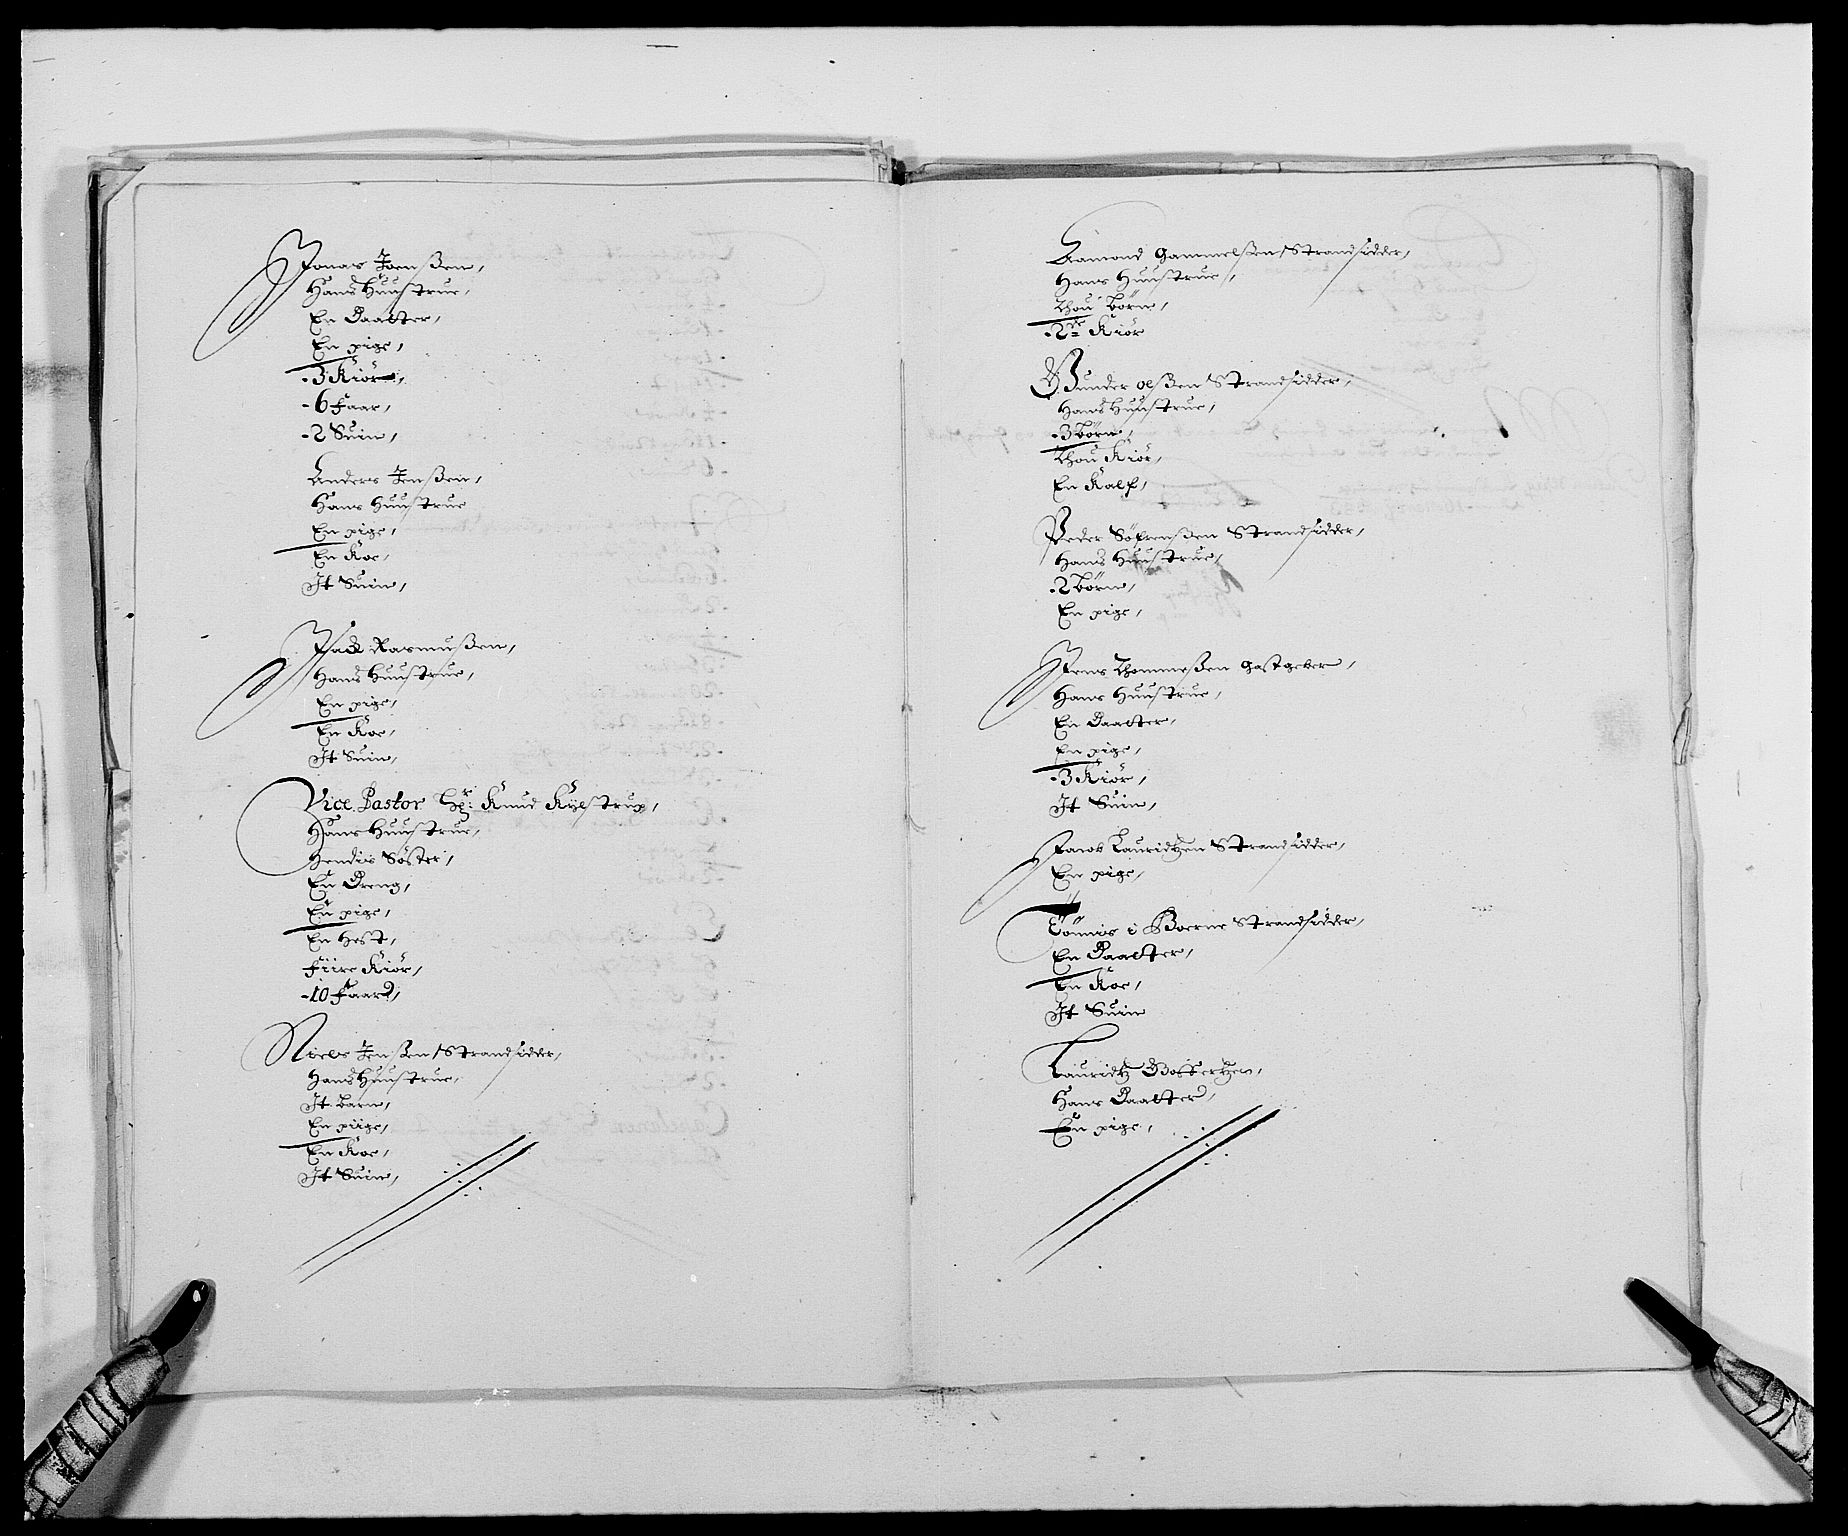 Jonas Jenßen,
Hans Huustrue,
En Daatter,
En pige,
-3 Kiör,
-6 Faar,
-2 Suin,
Anders Jenßen,
Hans Huustrue
En pige,
En Koe,
It Suin,
Isack Rasmußen,
Hans Huustrue,
En pige,
En Koe,
It Suin,
Vice Pastor Hr: Knud Kylstrup,
Hans Huustrue,
Hendis Söster,
En Dreng,
En pige,
En Hest,
Fiire Kiör,
-10 Faar,
Niels Jenßen Strandsidder,
Hans Huustrue,
It barn,
En piige,
En Koe,
It Suin,
Aamond Gammelßen Strandsidder,
Hans Huustrue,
Thou börn,
-2de Kiör
Gunder Olßen Strandsidder,
Hans Huustrue,
-3 börn,
Thou Kiör,
En Kalf,
Peder Söfrenßen Strandsidder,
Hans Huustrue,
-2 börn,
En pige,
Jens Thommeßen gastgeber,
Hans Huustrue,
En Daatter,
En pige,
-3 Kiör,
It Suin,
Jacob Lauridtzen Strandsidder,
En pige,
Tönnis i Boerne Strandsidder,
En Daatter,
En Koe,
It Suin
Lauridtz
Hans Daatter,
En pige,